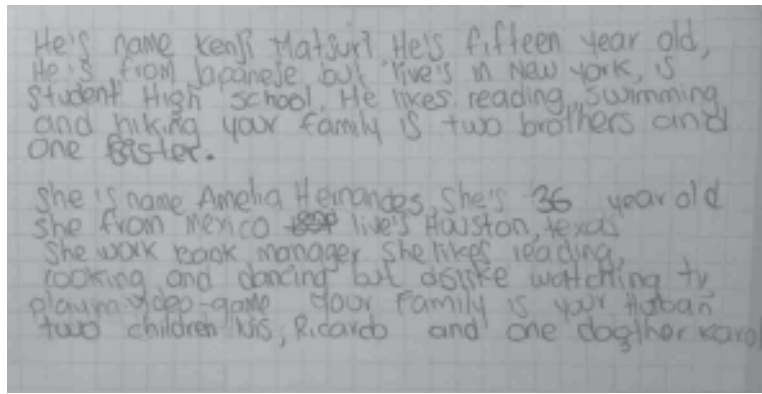 He's name Kenji Matsuri. He's fifteen year old,
He is from Japanese but live's in New york, is
Student High school. He likes reading, swimming
and hiking your family is two brothers and
one sister.
She is name Amelia Hernandes, She's 36 year old
she from Mexico live's Houston, texas
She work book manager She likes reading,
cooking and dancing but dislike watching tv,
playing video-game your Family is your Husban
two children Luis, Ricardo and one dogther Karol